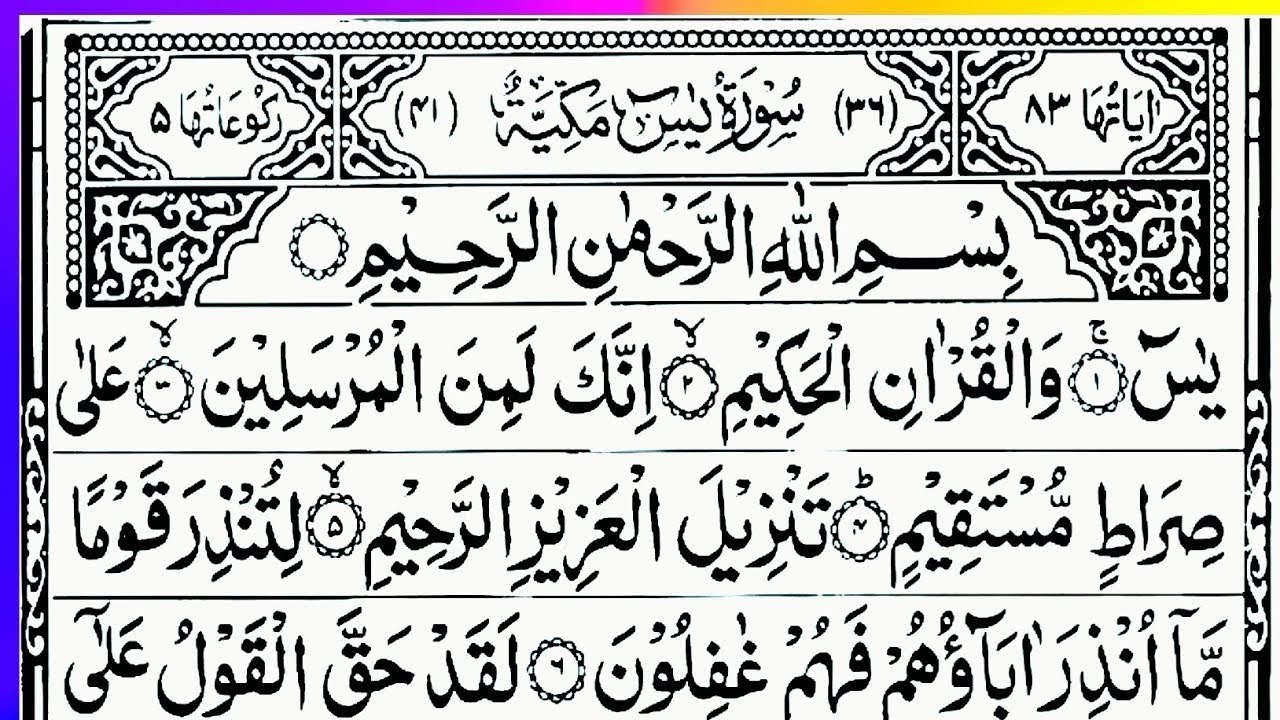 اٰيَاتُهَا ٨٣ (٣٦) سُوْرَةُ يٰسٓ مَكِّيَّةٌ (٤١) رُكُوْعَاتُهَا ٥
بِسْمِ اللّٰهِ الرَّحْمٰنِ الرَّحِيْمِ
يٰسٓ ۚ‏﴿١﴾ وَالْقُرْاٰنِ الْحَكِيْمِ ۙ‏﴿٢﴾ اِنَّكَ لَمِنَ الْمُرْسَلِيْنَ ۙ‏﴿٣﴾ عَلٰى
صِرَاطٍ مُّسْتَقِيْمٍ ؕ‏﴿۴﴾ تَنْزِيْلَ الْعَزِيْزِ الرَّحِيْمِ ۙ‏﴿۵﴾ لِتُنْذِرَ قَوْمًا
مَّاۤ اُنْذِرَ اٰبَآؤُهُمْ فَهُمْ غٰفِلُوْنَ ‏﴿٦﴾ لَقَدْ حَقَّ الْقَوْلُ عَلٰٓى